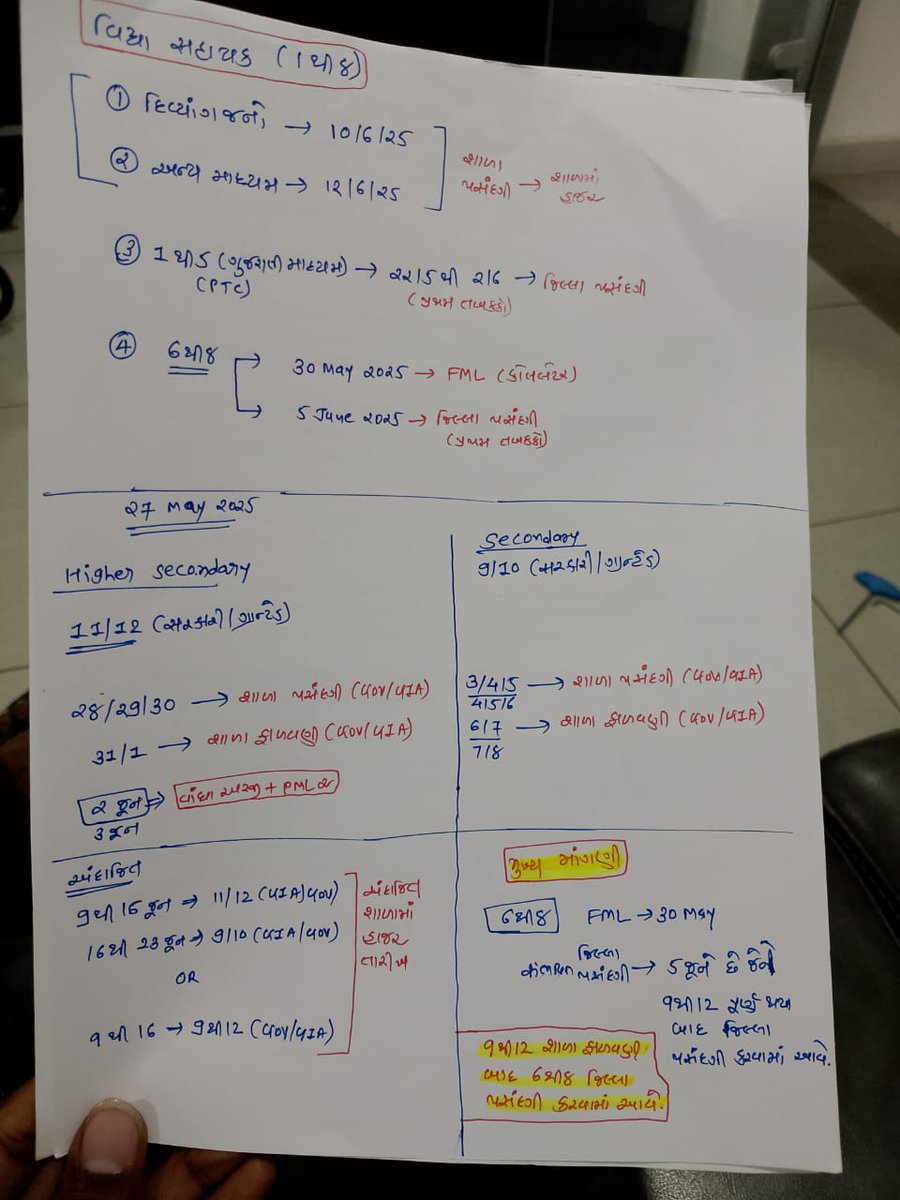 વિદ્યા સહાયક (1થી8)
① દિવ્યાંગજનો → 10/6/25
② અન્ય માધ્યમ → 12/6/25
શાળા પસંદગી → શાળામાં હાજર
③ 1થી5 (ગુજરાતી માધ્યમ) → 22/5થી 2/6 → જિલ્લા પસંદગી
(PTC) (પ્રથમ તબક્કો)
④ 6થી8
30 May 2025 → FML (કોલલેટર)
5 June 2025 → જિલ્લા પસંદગી
(પ્રથમ તબક્કો)
27 May 2025
Higher Secondary
11/12 (સરકારી/ગ્રાન્ટેડ)
28/29/30 → શાળા પસંદગી (GOV/GIA)
31/1 → શાળા ફાળવણી (GOV/GIA)
2 જૂન ⇒ વાંધા અરજી + PML 2
3 જૂન
Secondary
9/10 (સરકારી/ગ્રાન્ટેડ)
3/4/5 → શાળા પસંદગી (GOV/GIA)
4/5/6
6/7 → શાળા ફાળવણી (GOV/GIA)
7/8
અંદાજિત
9થી 16 જૂન ⇒ 11/12 (GIA/GOV)
16થી 23 જૂન ⇒ 9/10 (GIA/GOV)
OR
9 થી 16 → 9થી12 (GOV/GIA)
અંદાજિત
શાળામાં
હાજર
તારીખ
મુખ્ય માંગણી
6થી8 FML → 30 May
જિલ્લા
પસંદગી → 5 જૂને છે જેને
9થી12 પૂર્ણ થયા
બાદ જિલ્લા
પસંદગી કરવામાં આવે.
9થી12 શાળા ફાળવણી
બાદ 6થી8 જિલ્લા
પસંદગી કરવામાં આવે.